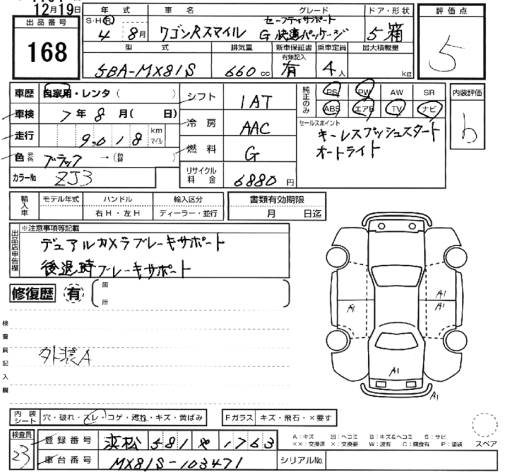 12月19日
出品番号
168
年式 車名 グレード ドア・形状 評価点
S・H・R 4年 8月 ワゴンRスマイル セーフティサポート G 快適パッケージ 5 箱
5
型式 排気量 新車保証書 有無記入 乗車定員 最大積載量
5BA-MX81S 660cc 有 4人 kg
車歴 自家用・レンタ( )
車検 7年 8月( 日)
走行 9,018 km マイル
色 ブラック →(替 )
カラーNo ZJ3
シフト 1AT
冷房 AAC
燃料 G
リサイクル料金 6880円
純正のみ PS PW AW SR
ABS エアB TV ナビ
内装評価
b
セールスポイント
キーレスプッシュスタート
オートライト
輸入車 モデル年式 ハンドル 輸入区分 書類有効期限
右H・左H ディーラー・並行 月 日迄
出品店申告欄
※注意事項等記載
デュアルカメラブレーキサポート
後退時ブレーキサポート
修復歴 有 箇所
検査員記入欄
外装A
A1
A1 A1
A1
内装シート 穴・破れ・スレ・コゲ・汚れ・キズ・黄ばみ
Fガラス キズ・飛石・×要す
検査員 23
登録番号 浜松 581 や 1763
車台番号 MX81S-103471
シリアルNo
A:キズ U:ヘコミ B:キズ&ヘコミ S:サビ
××:交換済 X:交換要 W:波有 C:腐食有 P:塗装
スペア